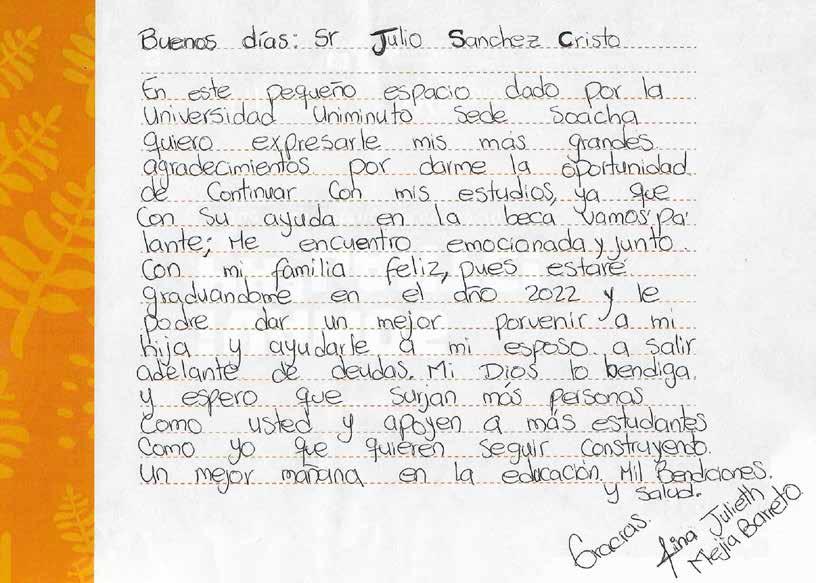 Buenos días: Sr Julio Sanchez Cristo
En este pequeño espacio dado por la
Universidad Uniminuto Sede Soacha
quiero expresarle mis más grandes
agradecimientos por darme la oportunidad
de Continuar Con mis estudios, ya que
Con Su ayuda en la beca Vamos Pa'
lante; Me encuentro emocionada y junto
Con mi familia feliz, pues estaré
graduandome en el año 2022 y le
podre dar un mejor porvenir a mi
hija y ayudarle a mi esposo a salir
adelante de deudas. Mi Dios lo bendiga
y espero que surjan más personas
Como usted y apoyen a más estudiantes
Como yo que quieren Seguir Construyendo
un mejor mañana en la educación. Mil Bendiciones.
y salud.
Gracias.
Julieth
Mejia Barreto